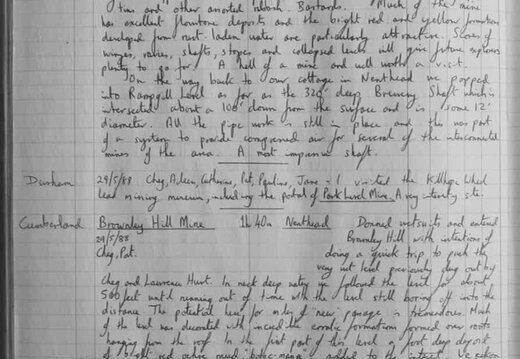 tins and other assorted rubbish. Bastards. Much of the mine
has excellent flowstone deposits and the bright red and yellow formations
developed from rust-laden water are particularly attractive. Scores of
winzes, raises, shafts, stopes and collapsed levels will give future explorers
plenty to go for! A hell of a mine and well worth a visit.
On the way back to our cottage in Nenthead we popped
into Rampgill Level as far as the 320' deep Brewery Shaft which is
intersected about a 100' down from the surface and is some 12'
diameter. All the pipe work is still in place and this was part
of a system to provide compressed air for several of the interconnected
mines of the area. A most impressive shaft.
Durham 29/5/88 Cheg, Aileen, Catherine, Pat, Pauline, Jane + I visited the Killhope Wheel
lead mining museum, including the portal of Park Level Mine. A very interesting site.
Cumberland Brownley Hill Mine 1h 40m Nenthead Donned wetsuits and entered
29/5/88 Brownley Hill with intentions of
Cheg, Pat. doing a quick trip to push the
very wet level previously dug out by
Cheg and Lawrence Hurt. In neck deep water we followed the level for about
500 feet until running out of time with the level still boring off into the
distance. The potential here for miles of 'new' passage is tremendous. Much
of the level was decorated with incredible erratic formations formed over roots
hanging from the roof. In the first part of this level a foot deep deposit
of bright red ochre mud added to the interest. We